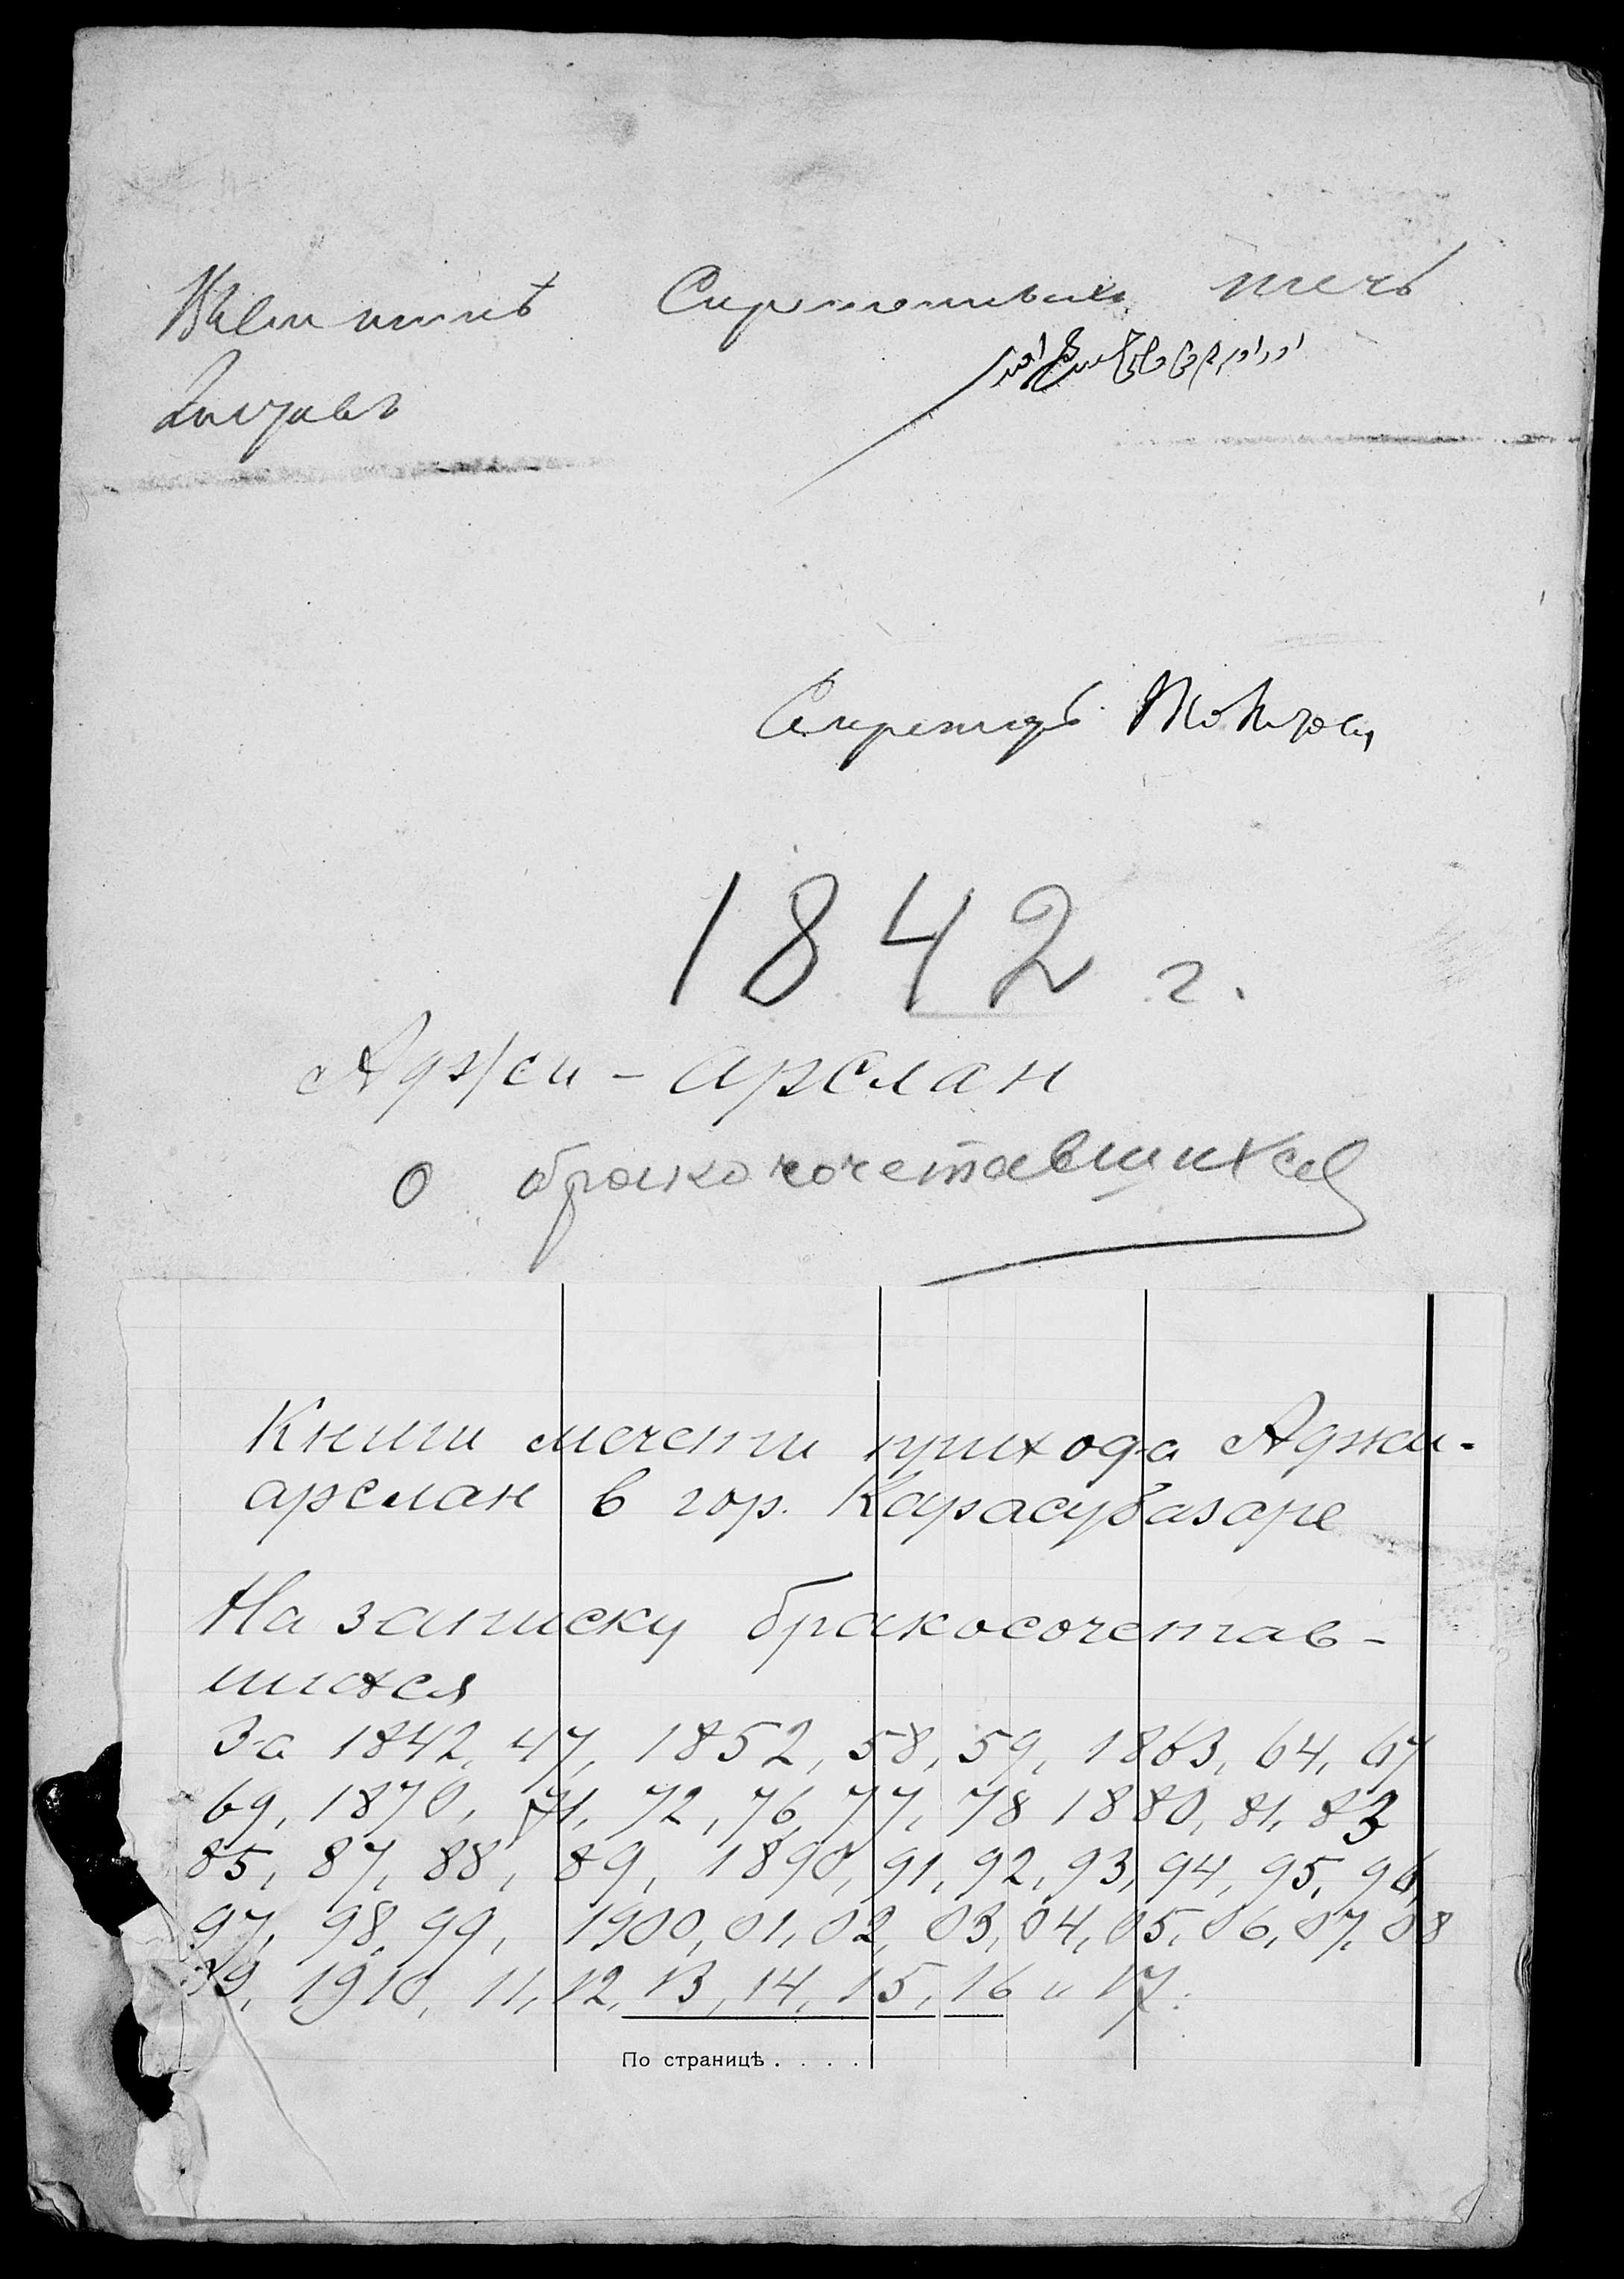 1842 г.
Аджи-арслан
о бракосочетавшихся
Книги мечети прихода Аджи-
арслан в гор. Карасубазаре
На записку бракосочетав-
шихся
За 1842, 47, 1852, 58, 59, 1863, 64, 67
69, 1870, 71, 72, 76, 77, 78 1880, 81, 83
85, 87, 88, 89, 1890, 91, 92, 93, 94, 95, 96,
97, 98, 99, 1900, 01, 02, 03, 04, 05, 06, 07, 08
09, 1910, 11, 12, 13, 14, 15, 16 и 17.
По страницѣ . . . .